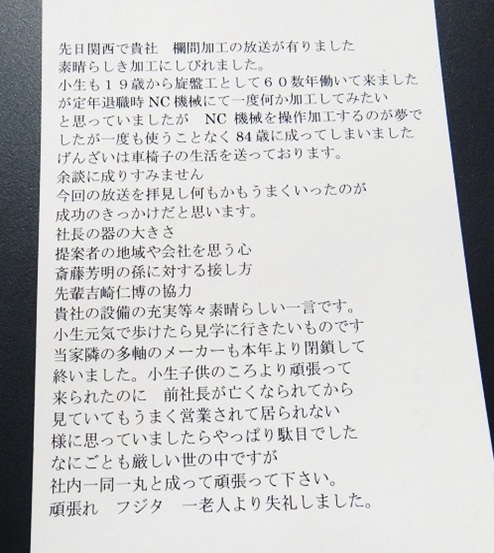 先日関西で貴社　欄間加工の放送が有りました
素晴らしき加工にしびれました。
小生も１９歳から旋盤工として６０数年働いて来ました
が定年退職時 NC 機械にて一度何か加工してみたい
と思っていましたが　NC 機械を操作加工するのが夢で
したが一度も使うことなく 84 歳に成ってしまいました
げんざいは車椅子の生活を送っております。
余談に成りすみません
今回の放送を拝見し何もかもうまくいったのが
成功のきっかけだと思います。
社長の器の大きさ
提案者の地域や会社を思う心
斎藤芳明の孫に対する接し方
先輩吉崎仁博の協力
貴社の設備の充実等々素晴らしい一言です。
小生元気で歩けたら見学に行きたいものです
当家隣の多軸のメーカーも本年より閉鎖して
終いました。小生子供のころより頑張って
来られたのに　前社長が亡くなられてから
見ていてもうまく営業されて居られない
様に思っていましたらやっぱり駄目でした
なにごとも厳しい世の中ですが
社内一同一丸と成って頑張って下さい。
頑張れ　フジタ　一老人より失礼しました。